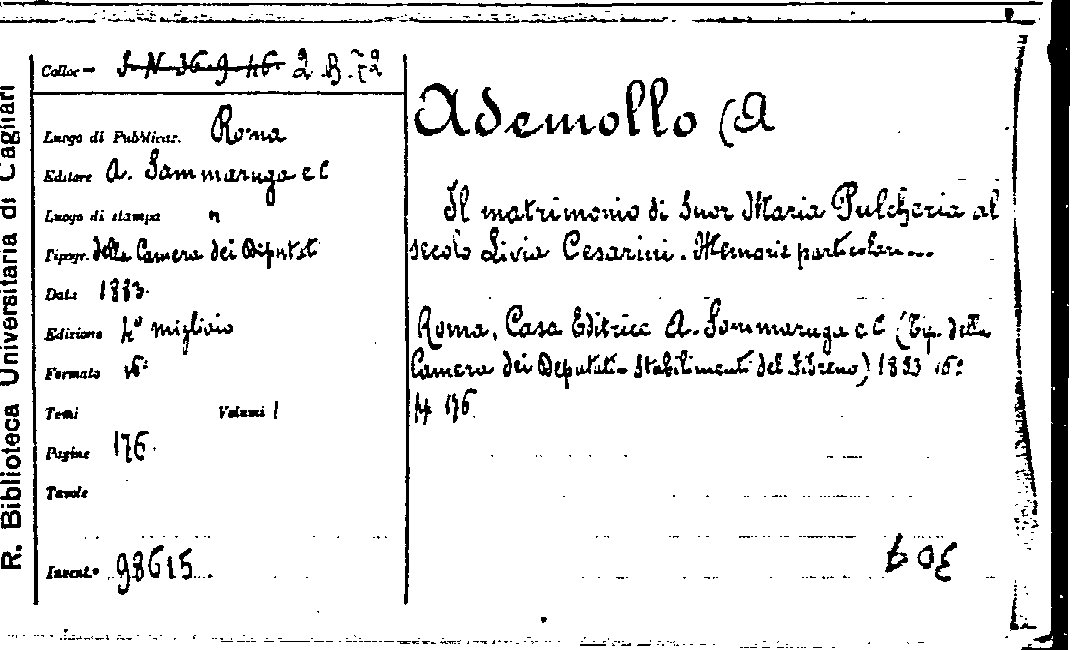 R. Biblioteca Universitaria di Cagliari
Colloc - S.N. 36-9-46 2. B. 72
Luogo di Pubblicaz. Roma
Editore A. Sommaruga e C
Luogo di stampa "
Tipogr. della Camera dei Deputati
Data 1883.
Edizione 4ª migliaio
Formato 16°
Tomi Volumi 1
Pagine 176.
Tavole
Invent.° 98615
Ademollo (A
Il matrimonio di Suor Maria Pulcheria al
secolo Livia Cesarini. Memorie particolari...
Roma, Casa Editrice A. Sommaruga e C (Tip. della
Camera dei Deputati - Stabilimenti del Fibreno) 1883 16°
pp 176.